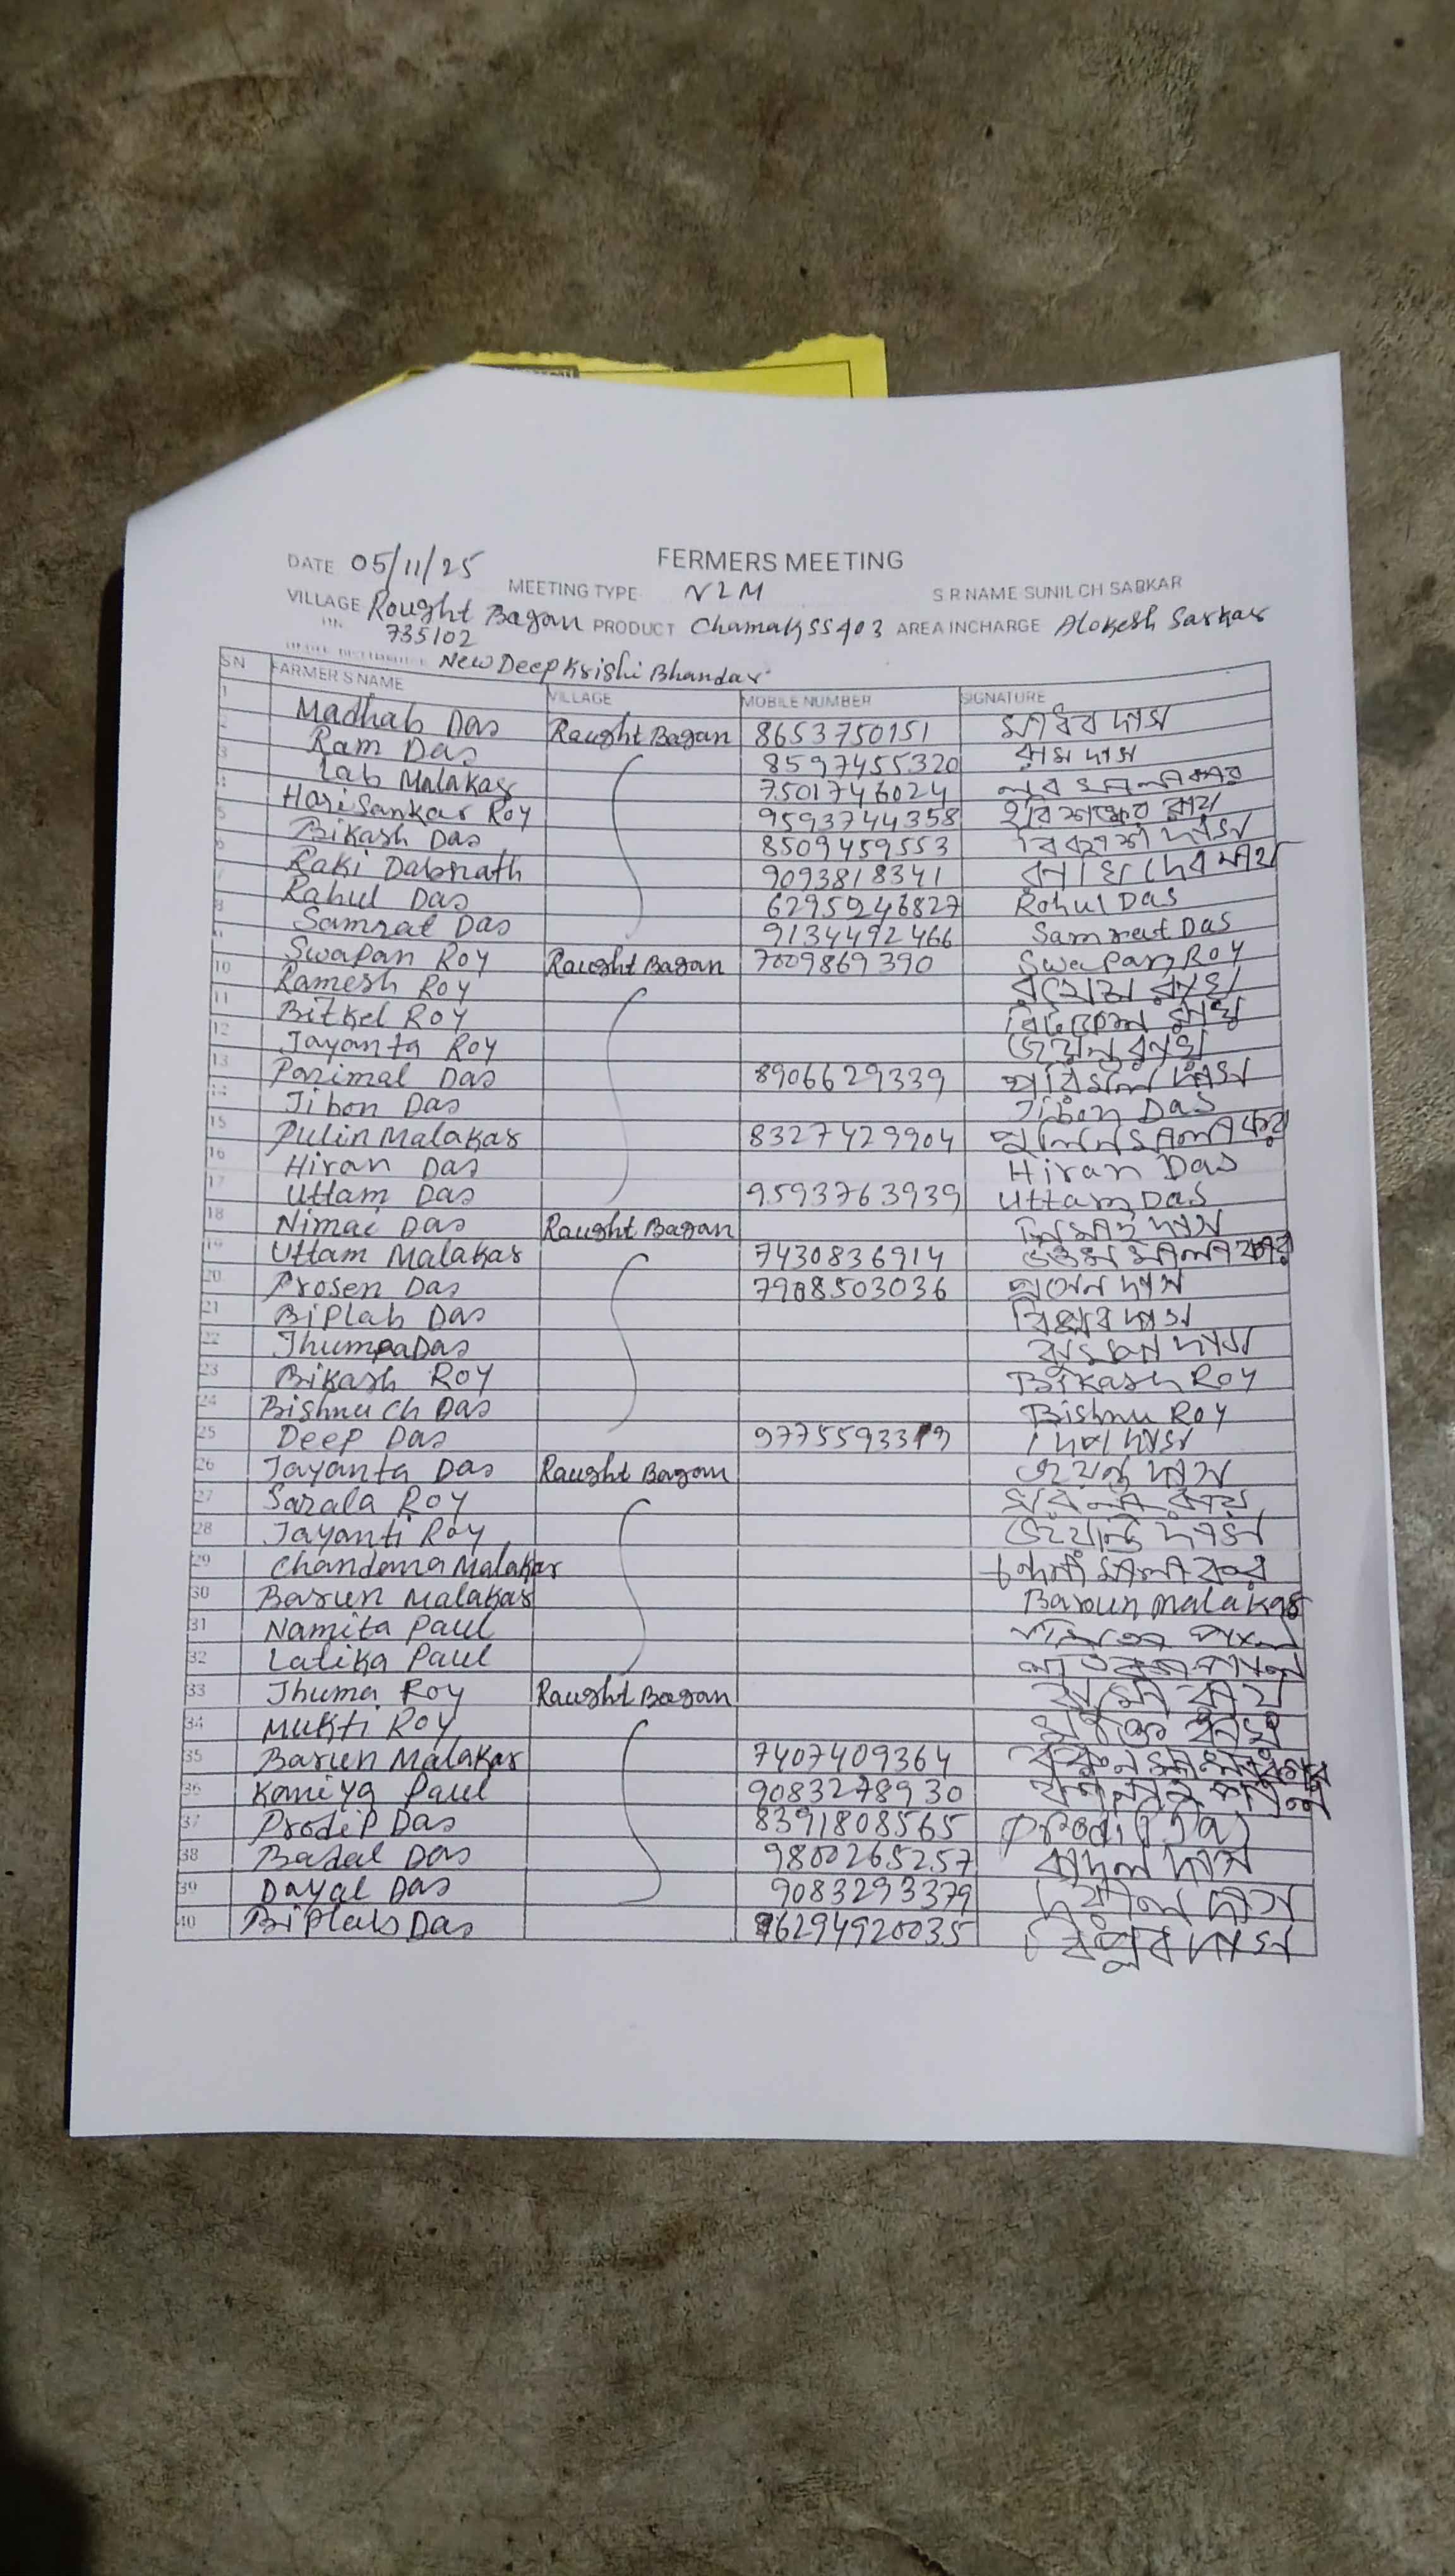 FERMERS MEETING
DATE 05/11/25 MEETING TYPE V2M S.R NAME SUNIL CH SARKAR
VILLAGE Rought Bagan PRODUCT Chamak SS403 AREA INCHARGE Alokesh Sarkar
735102
New Deep Krishi Bhandar
SN FARMER S NAME VILLAGE MOBILE NUMBER SIGNATURE
1 Madhab Das Raught Bagan 8653750151 মাধব দাস
2 Ram Das 8597455320 রাম দাস
3 Lab Malakar 7501746024 লব মালাকার
4 Hari Sankar Roy 9593744358 হরি শঙ্কর রায়
5 Bikash Das 8509459553 বিকাশ দাস
6 Raki Dabnath 9093818341
7 Rahul Das 6295946827 Rohul Das
8 Samrat Das 9134492466 Samrat Das
9 Swapan Roy Raught Bagan 7009869390 Swapan Roy
10 Ramesh Roy রমেশ রায়
11 Bitkel Roy বিটকেল রায়
12 Jayanta Roy জয়ন্ত রায়
13 Parimal Das 8906629339 পরিমল দাস
14 Jibon Das Jibon Das
15 Pulin Malakar 8327429904 পুলিন মালাকার
16 Hiran Das Hiran Das
17 Uttam Das 9593763939 Uttam Das
18 Nimai Das Raught Bagan নিমাই দাস
19 Uttam Malakar 7430836914 উত্তম মালাকার
20 Prosen Das 7908503036 প্রসেন দাস
21 Biplab Das বিপ্লব দাস
22 Jhumpa Das দাস
23 Bikash Roy Bikash Roy
24 Bishnu Ch Das Bishnu Roy
25 Deep Das দিপ দাস
26 Jayanta Das Raught Bagan জয়ন্ত দাস
27 Sarala Roy সরলা রায়
28 Jayanti Roy জয়ন্তি দাস
29 Chandana Malakar মালাকার
30 Barun Malakar Barun Malakar
31 Namita Paul
32 Latika Paul
33 Jhuma Roy Raught Bagan ঝুমা রায়
34 Mukti Roy
35 Barun Malakar 7407409364
36 Kaniya Paul 9083278930
37 Prodip Das 8391808565
38 Badal Das 9800265257 বাদল দাস
39 Dayal Das 9083293379 দয়াল দাস
40 Biplab Das 6294920035 বিপ্লব দাস